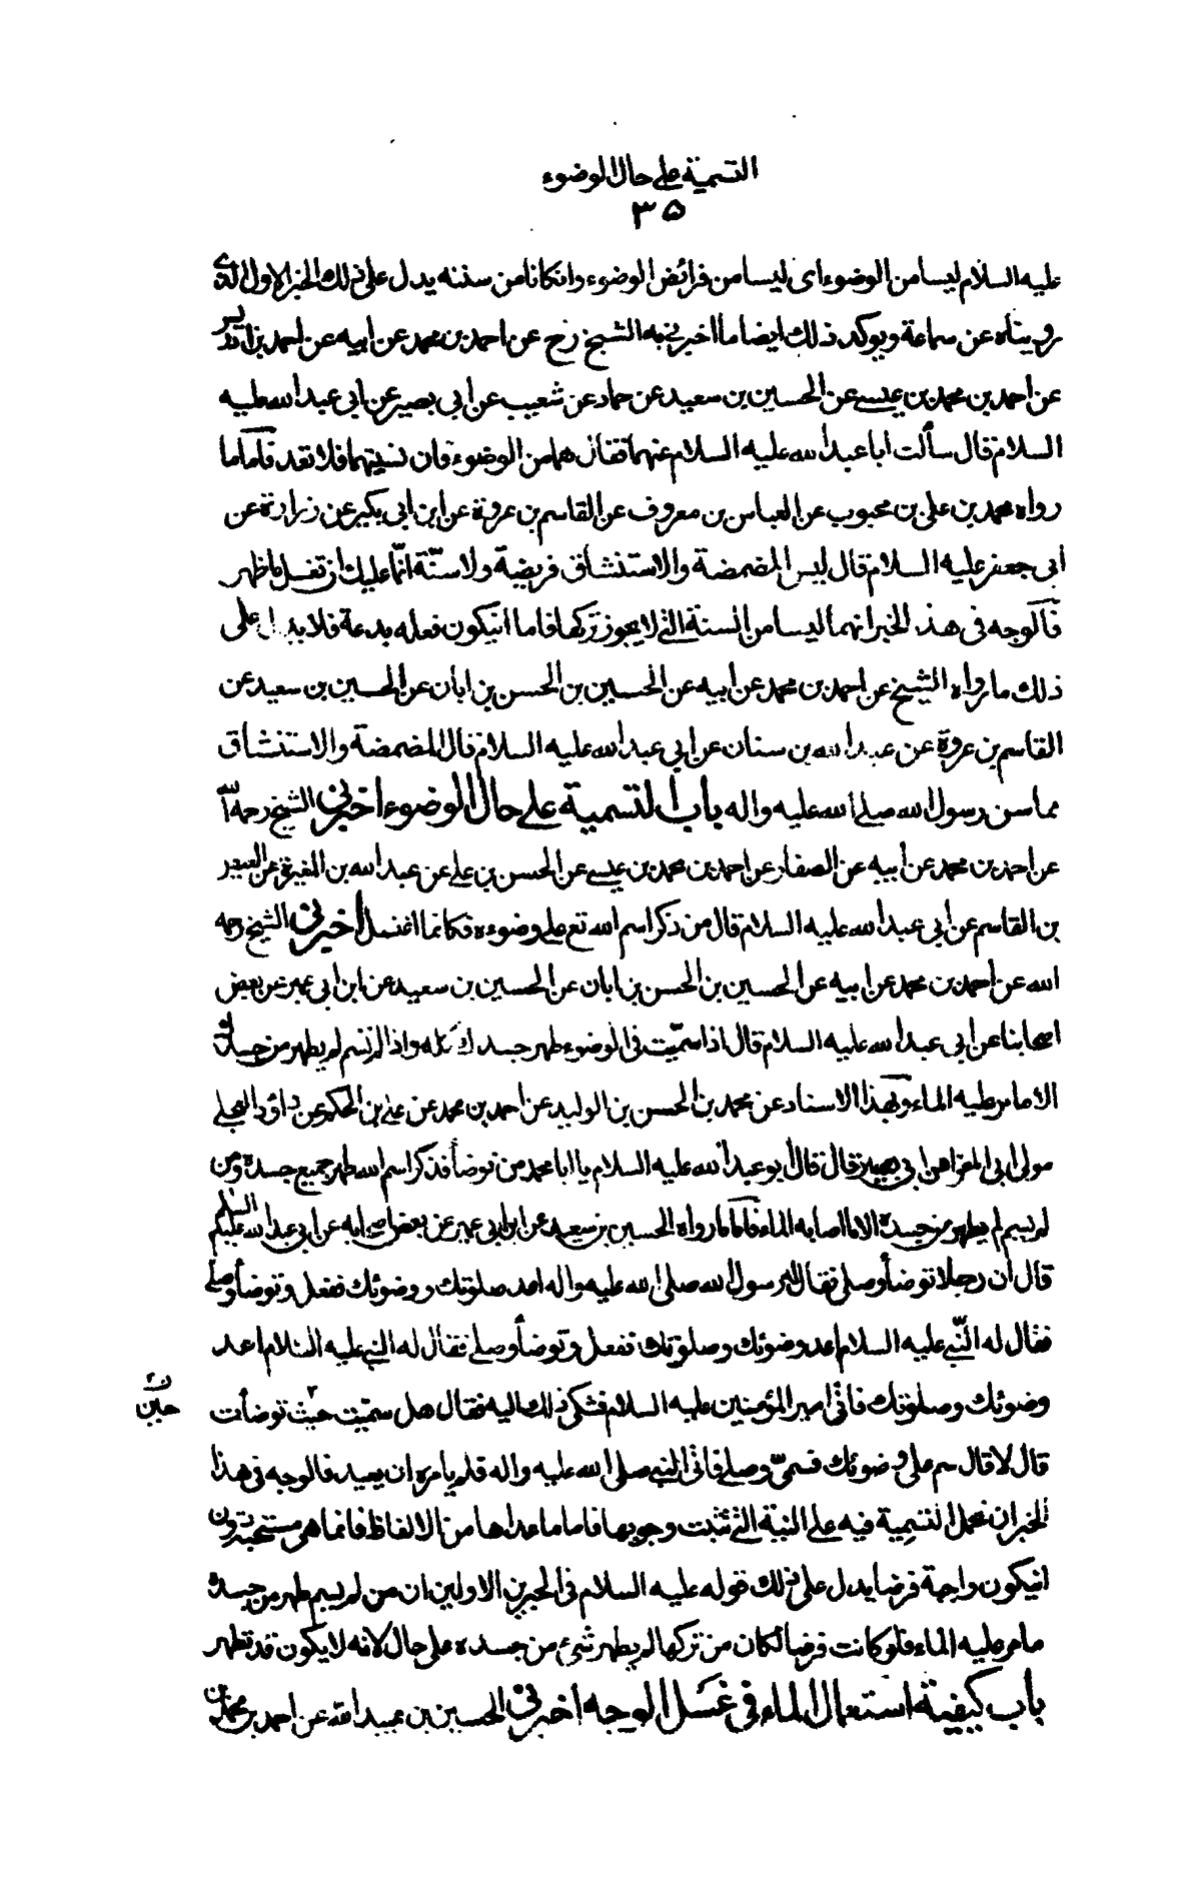 التسمية على حال الوضوء
٣٥
عليه السلام ليسا من الوضوء اى ليسا من فرائض الوضوء وانكانا من سننه يدل على ذلك الخبر الاول الذى
رويناه عن سماعة ويؤكد ذلك ايضا ما اخبرنى به الشيخ رح عن احمد بن محمد عن ابيه عن احمد بن ادريس
عن احمد بن محمد بن عيسى عن الحسين بن سعيد عن حماد عن شعيب عن ابى بصير عن ابى عبد الله عليه
السلام قال سألت ابا عبد الله عليه السلام عنهما فقال هما من الوضوء فان نسيتهما فلا تعد فأما ما
رواه محمد بن على بن محبوب عن العباس بن معروف عن القاسم بن عروة عن ابن ابى بكير عن زرارة عن
أبى جعفر عليه السلام قال ليس المضمضة والاستنشاق فريضة ولا سنّة انّما عليك ان تغسل ما ظهر
فالوجه فى هذا الخبر انهما ليسا من السنة التى لا يجوز تركها فاما انيكون فعله بدعة فلا يدل على
ذلك ما رواه الشيخ عن احمد بن محمد عن ابيه عن الحسين بن الحسن بن ابان عن الحسين بن سعيد عن
القاسم بن عروة عن عبد الله بن سنان عن ابى عبد الله عليه السلام قال المضمضة والاستنشاق
مما سن رسول الله صلى الله عليه واله باب التسمية على حال الوضوء اخبرنى الشيخ رحمه الله
عن احمد بن محمد عن أبيه عن الصفار عن احمد بن محمد بن عيسى عن الحسن بن على عن عبد الله بن المغيرة عن العيص
بن القاسم عن ابى عبد الله عليه السلام قال من ذكر اسم الله تع على وضوءه فكانما اغتسل أخبرنى الشيخ رحمه
الله عن أحمد بن محمد عن ابيه عن الحسين بن الحسن بن ابان عن الحسين بن سعيد عن ابن ابى عمير عن بعض
اصحابنا عن ابى عبد الله عليه السلام قال اذا سمّيت فى الوضوء طهر جسدك كله واذا لم تسم لم يطهر من جسدك
الا ما مر عليه الماء وبهذا الاسناد عن محمد بن الحسن بن الوليد عن احمد بن محمد عن على بن الحكم عن داؤد العجلى
مولى ابى المغرا عن ابى بصير قال قال أبو عبد الله عليه السلام يا ابا محمد من توضأ فذكر اسم الله طهر جميع جسده ومن
لم يسم لم يطهر من جسده الا ما اصابه الماء فأما ما رواه الحسين بن سعيد عن ابن ابى عمير عن بعض اصحابه عن ابى عبد الله عليه السلم
قال ان رجلا توضأ وصلى فقال له رسول الله صلى الله عليه واله اعد صلوتك ووضوئك ففعل وتوضأ وصلى
فقال له النّبى عليه السلام اعد وضوئك وصلوتك ففعل وتوضأ وصلى فقال له النبى عليه السلام اعد
وضوئك وصلوتك فأتى امير المؤمنين عليه السلام فشكى ذلك اليه فقال هل سميّت حيث توضأت
حين
قال لا قال سم على وضوئك فسمىّ وصلى فاتى النبى صلى الله عليه واله فلم يامره ان يعيد فالوجه فى هذا
الخبر ان نحمل التسمية فيه على النية التى ثبت وجوبها فاما ما عداها من الالفاظ فانما هى مستحبة دون
انيكون واجبة فرضا يدل على ذلك قوله عليه السلام فى الخبرين الاولين ان من لم يسم طهر من جسده
ما مر عليه الماء فلو كانت فرضا لكان من تركها لم يطهر شئ من جسده على حال لانه لا يكون قد تطهر
باب كيفية استعمال الماء فى غسل الوجه اخبرنى الحسين بن عبيد الله عن احمد بن محمد بن